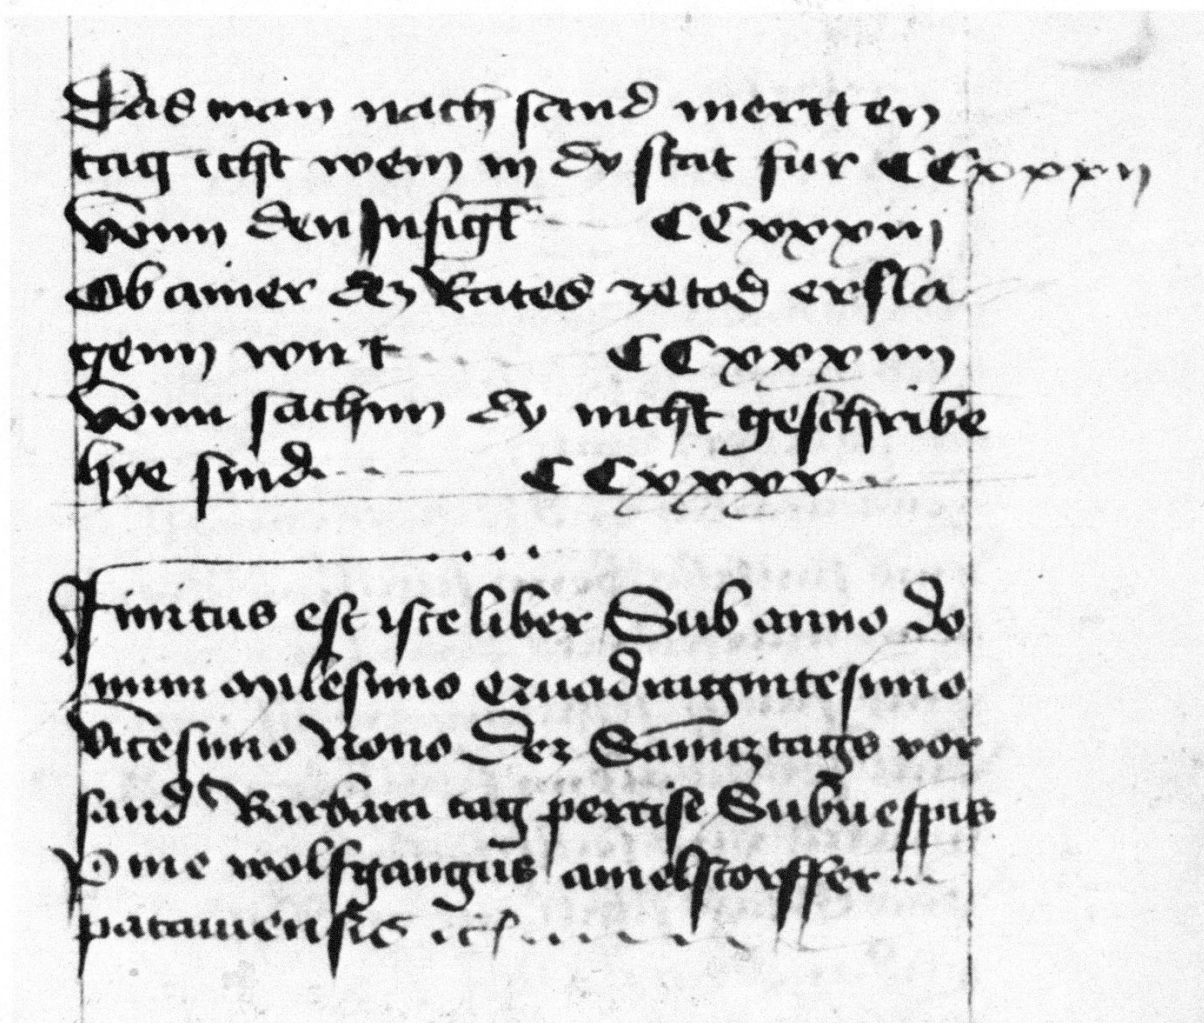 Das man nach sand mertten
tag icht wein in dy stat fur CCxxxii
Vonn den Insigl̄ CCxxxiii
Ob ainer dez Rates ze tod ersla
genn wirt CCxxxiiii
Vonn sachnn dy nicht geschribē
hye sind CCxxxv
Finitus est iste liber Sub anno do
mini Milesimo Quadringintesimo
Vicesimo Nono Dez Sāmcztags vor
sand Barbara tag precise Sub vespris
Per me wolfgangus amelstorffer
patauiensis ꝛc̄